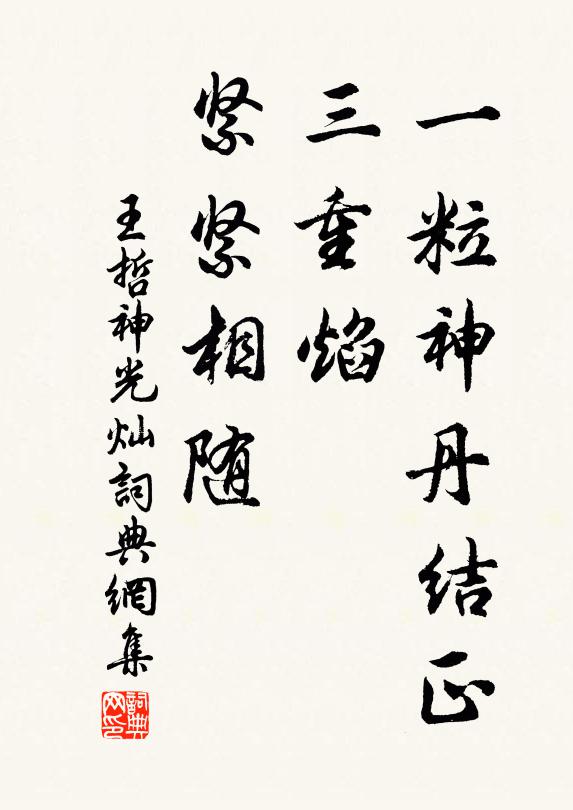 一粒神丹结正
三重焰
紧紧相随
王哲神光灿詞典網集
詞典网印